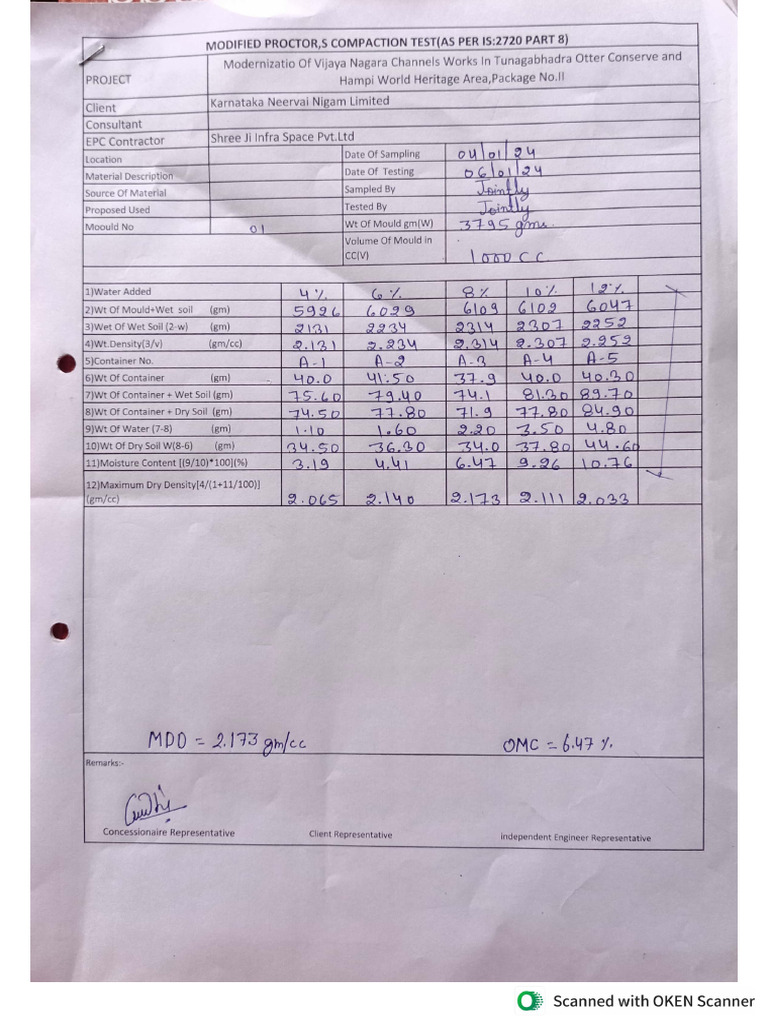 MODIFIED PROCTOR,S COMPACTION TEST(AS PER IS:2720 PART 8)
PROJECT Modernizatio Of Vijaya Nagara Channels Works In Tunagabhadra Otter Conserve and Hampi World Heritage Area,Package No.II
Client Karnataka Neervai Nigam Limited
Consultant
EPC Contractor Shree Ji Infra Space Pvt.Ltd
Location Date Of Sampling 04/01/24
Material Description Date Of Testing 06/01/24
Source Of Material Sampled By Jointly
Proposed Used Tested By Jointly
Moould No 01 Wt Of Mould gm(W) 3795 gms.
Volume Of Mould in CC(V) 1000 CC
1)Water Added 4% 6% 8% 10% 12%
2)Wt Of Mould+Wet soil (gm) 5926 6029 6109 6102 6047
3)Wet Of Wet Soil (2-w) (gm) 2131 2234 2314 2307 2252
4)Wt.Density(3/v) (gm/cc) 2.131 2.234 2.314 2.307 2.252
5)Container No. A-1 A-2 A-3 A-4 A-5
6)Wt Of Container (gm) 40.0 41.50 37.9 40.0 40.30
7)Wt Of Container + Wet Soil (gm) 75.60 79.40 74.1 81.30 89.70
8)Wt Of Container + Dry Soil (gm) 74.50 77.80 71.9 77.80 84.90
9)Wt Of Water (7-8) (gm) 1.10 1.60 2.20 3.50 4.80
10)Wt Of Dry Soil W(8-6) (gm) 34.50 36.30 34.0 37.80 44.60
11)Moisture Content [(9/10)*100](%) 3.19 4.41 6.47 9.26 10.76
12)Maximum Dry Density[4/(1+11/100)] (gm/cc) 2.065 2.140 2.173 2.111 2.033
MDD = 2.173 gm/cc OMC = 6.47 %
Remarks:-
Concessionaire Representative Client Representative Independent Engineer Representative
Scanned with OKEN Scanner